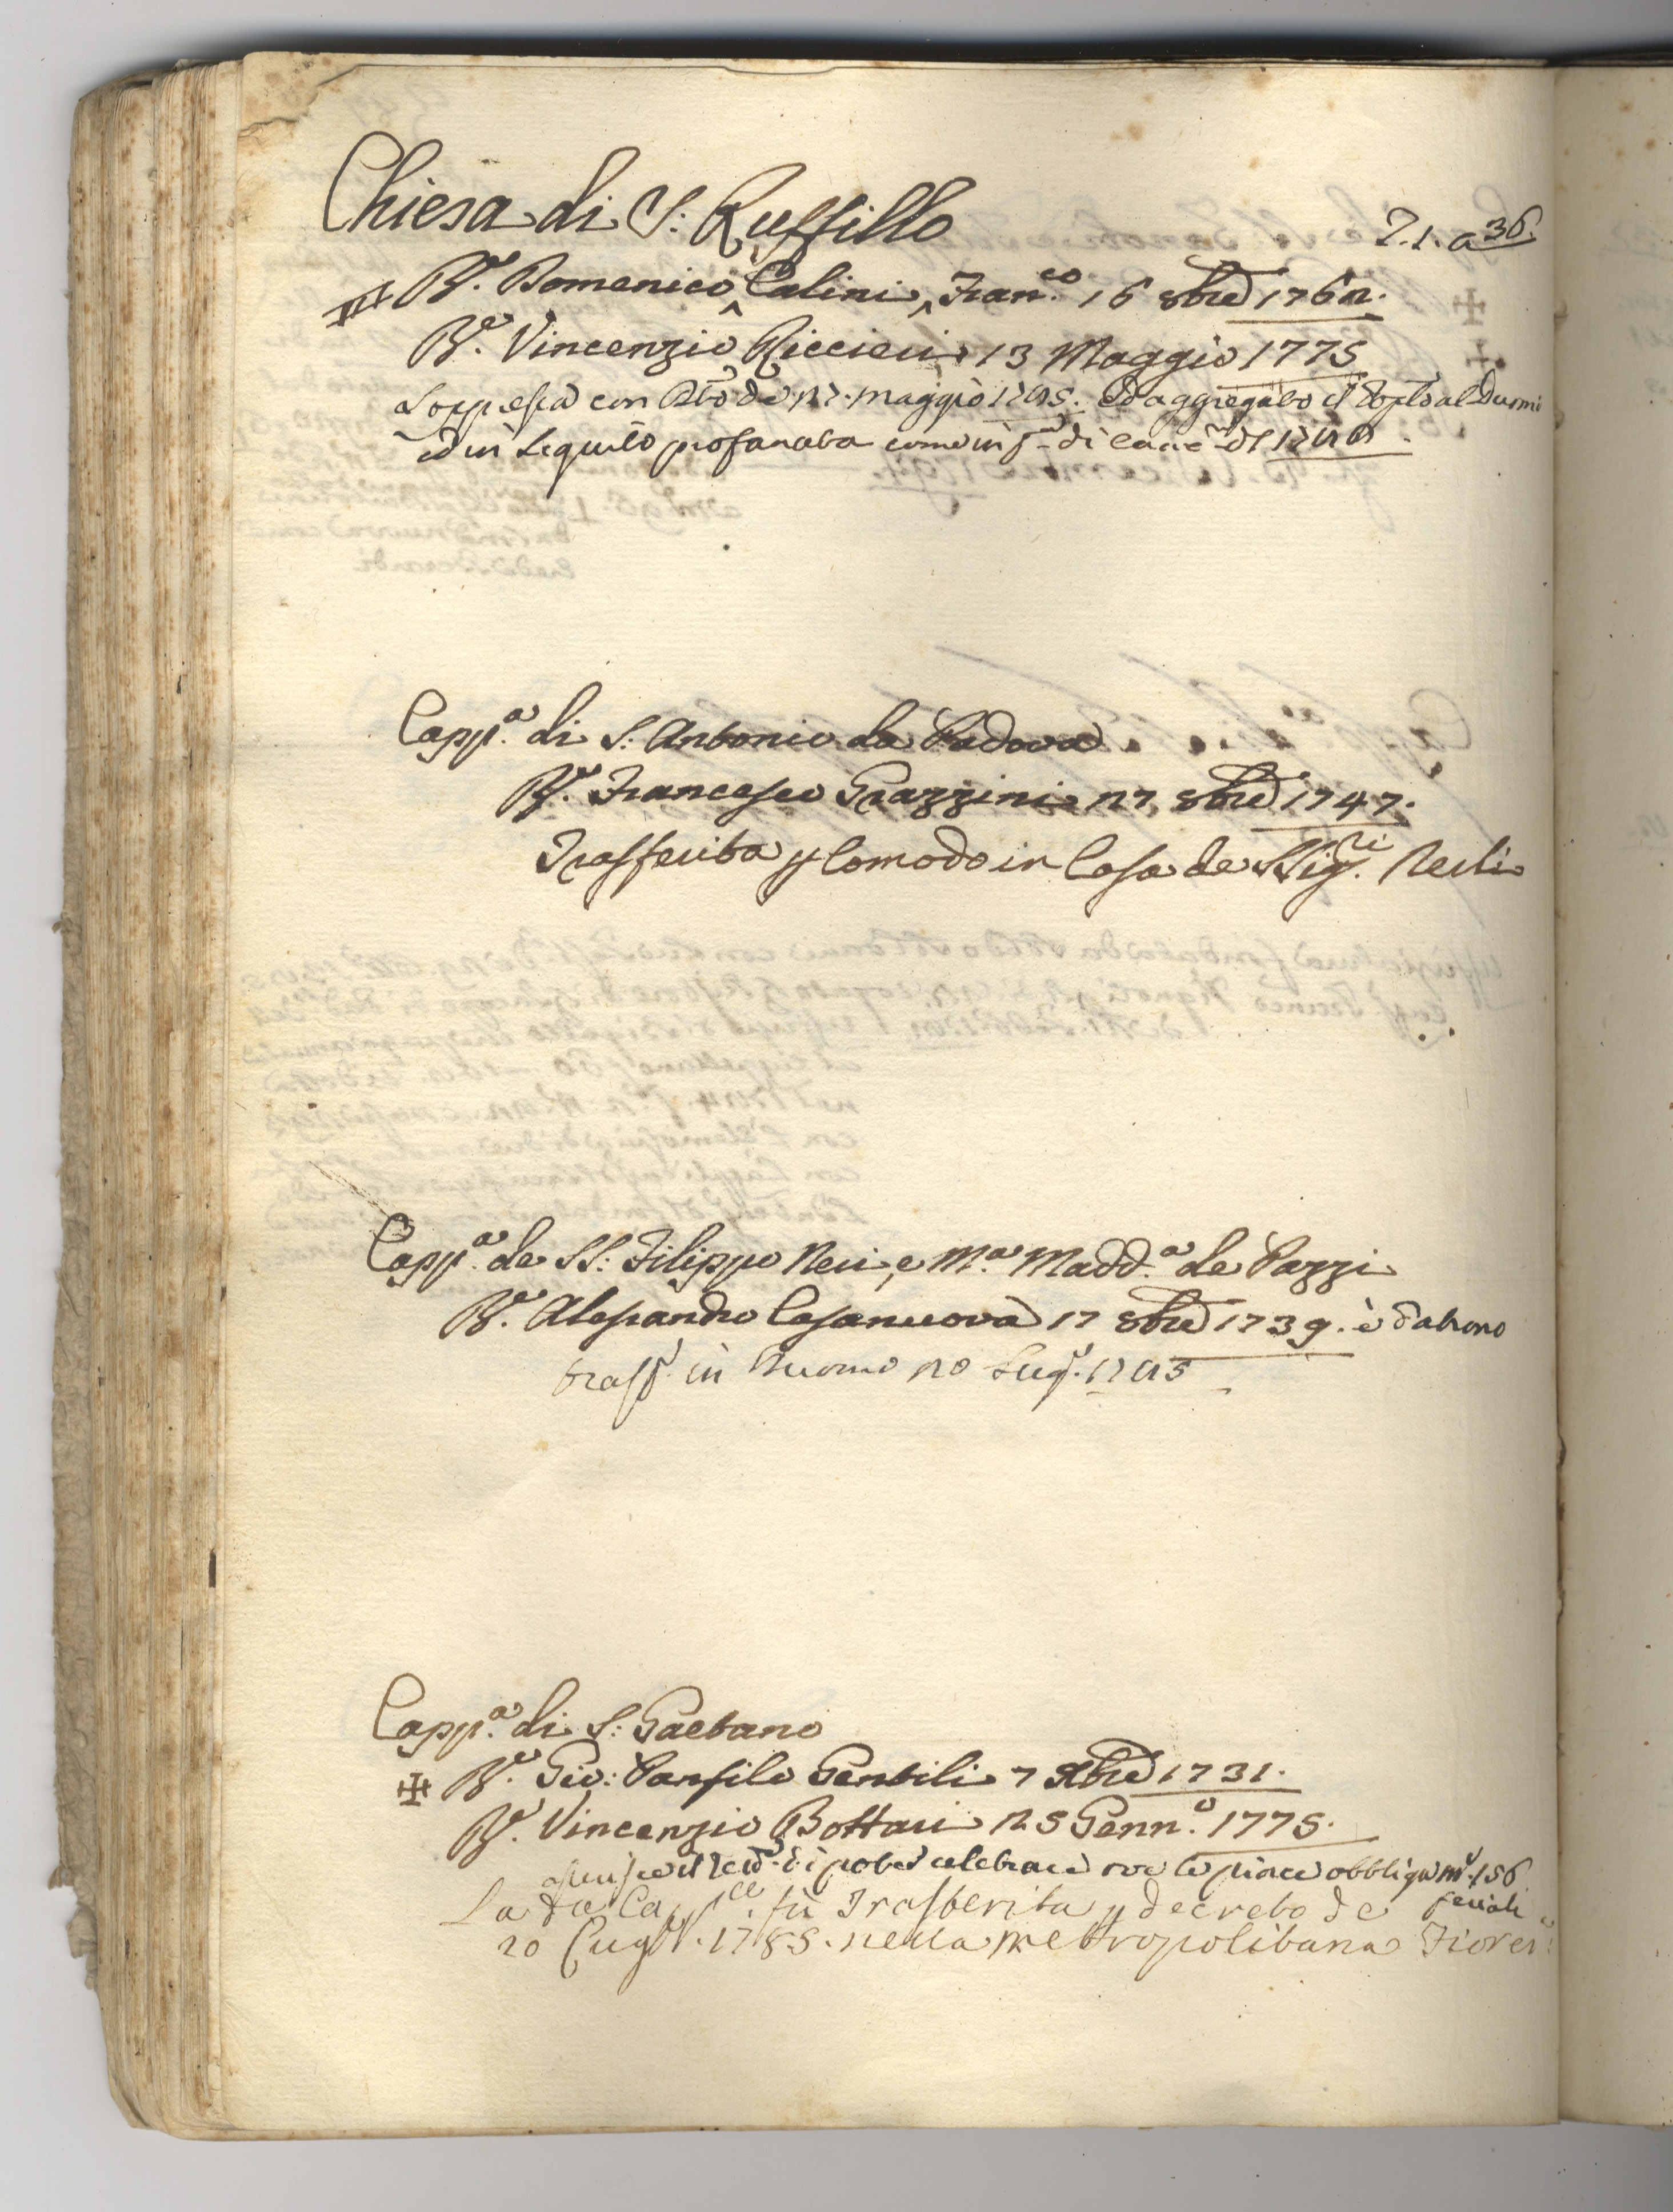 Chiesa di S: Ruffillo
2.1. a 36.
Rᵉ. Domenico Calini, Fran.ᶜᵒ 16 8bre 1762.
Rᵉ. Vincenzio Riccieri 13 Maggio 1775
Soppressa con de 27. maggio 1785. ed aggregato il al Duomo
ed in seguito profanata come in di del
Capp.ᵃ di S: Antonio da Padova
Rᵉ. Francesco Grazzini 27 8bre 1747.
Trasferita p Comodo in Casa de SSig.ʳⁱ Nerli
Capp.ᵃ de SS: Filippo Neri, e M.ᵃ Madd.ᵃ de Pazzi
Rᵉ. Alessandro Casanuova 17 8bre 1739. è Patrono
trasf. in Duomo 20 Lug. 1785
Capp.ᵃ di S: Gaetano
Rᵉ. Gio: Panfilo Gentili 7 Xbre 1731.
Rᵉ. Vincenzio Bottari 25 Genn.ᵒ 1775.
il di poter celebrare ove le piace obbligo 156
feriali
La da fù Trasferita p decreto de
20 Lug. 1785. nella Metropolitana Fioren: